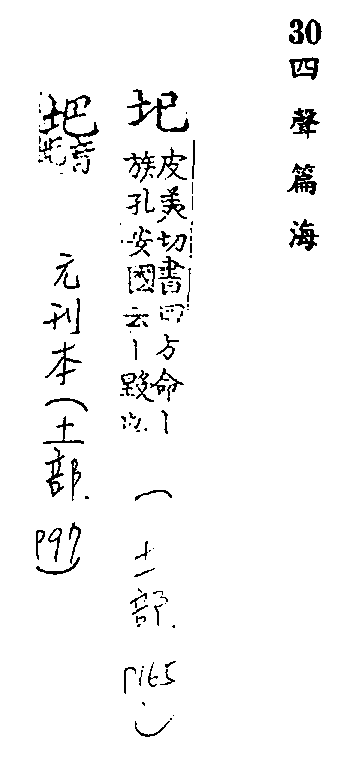 30四聲篇海
圮
皮美切書曰方命丨
族孔安國云丨毀也
(土部. P165.)
圯
音
元刊本(土部. P97)